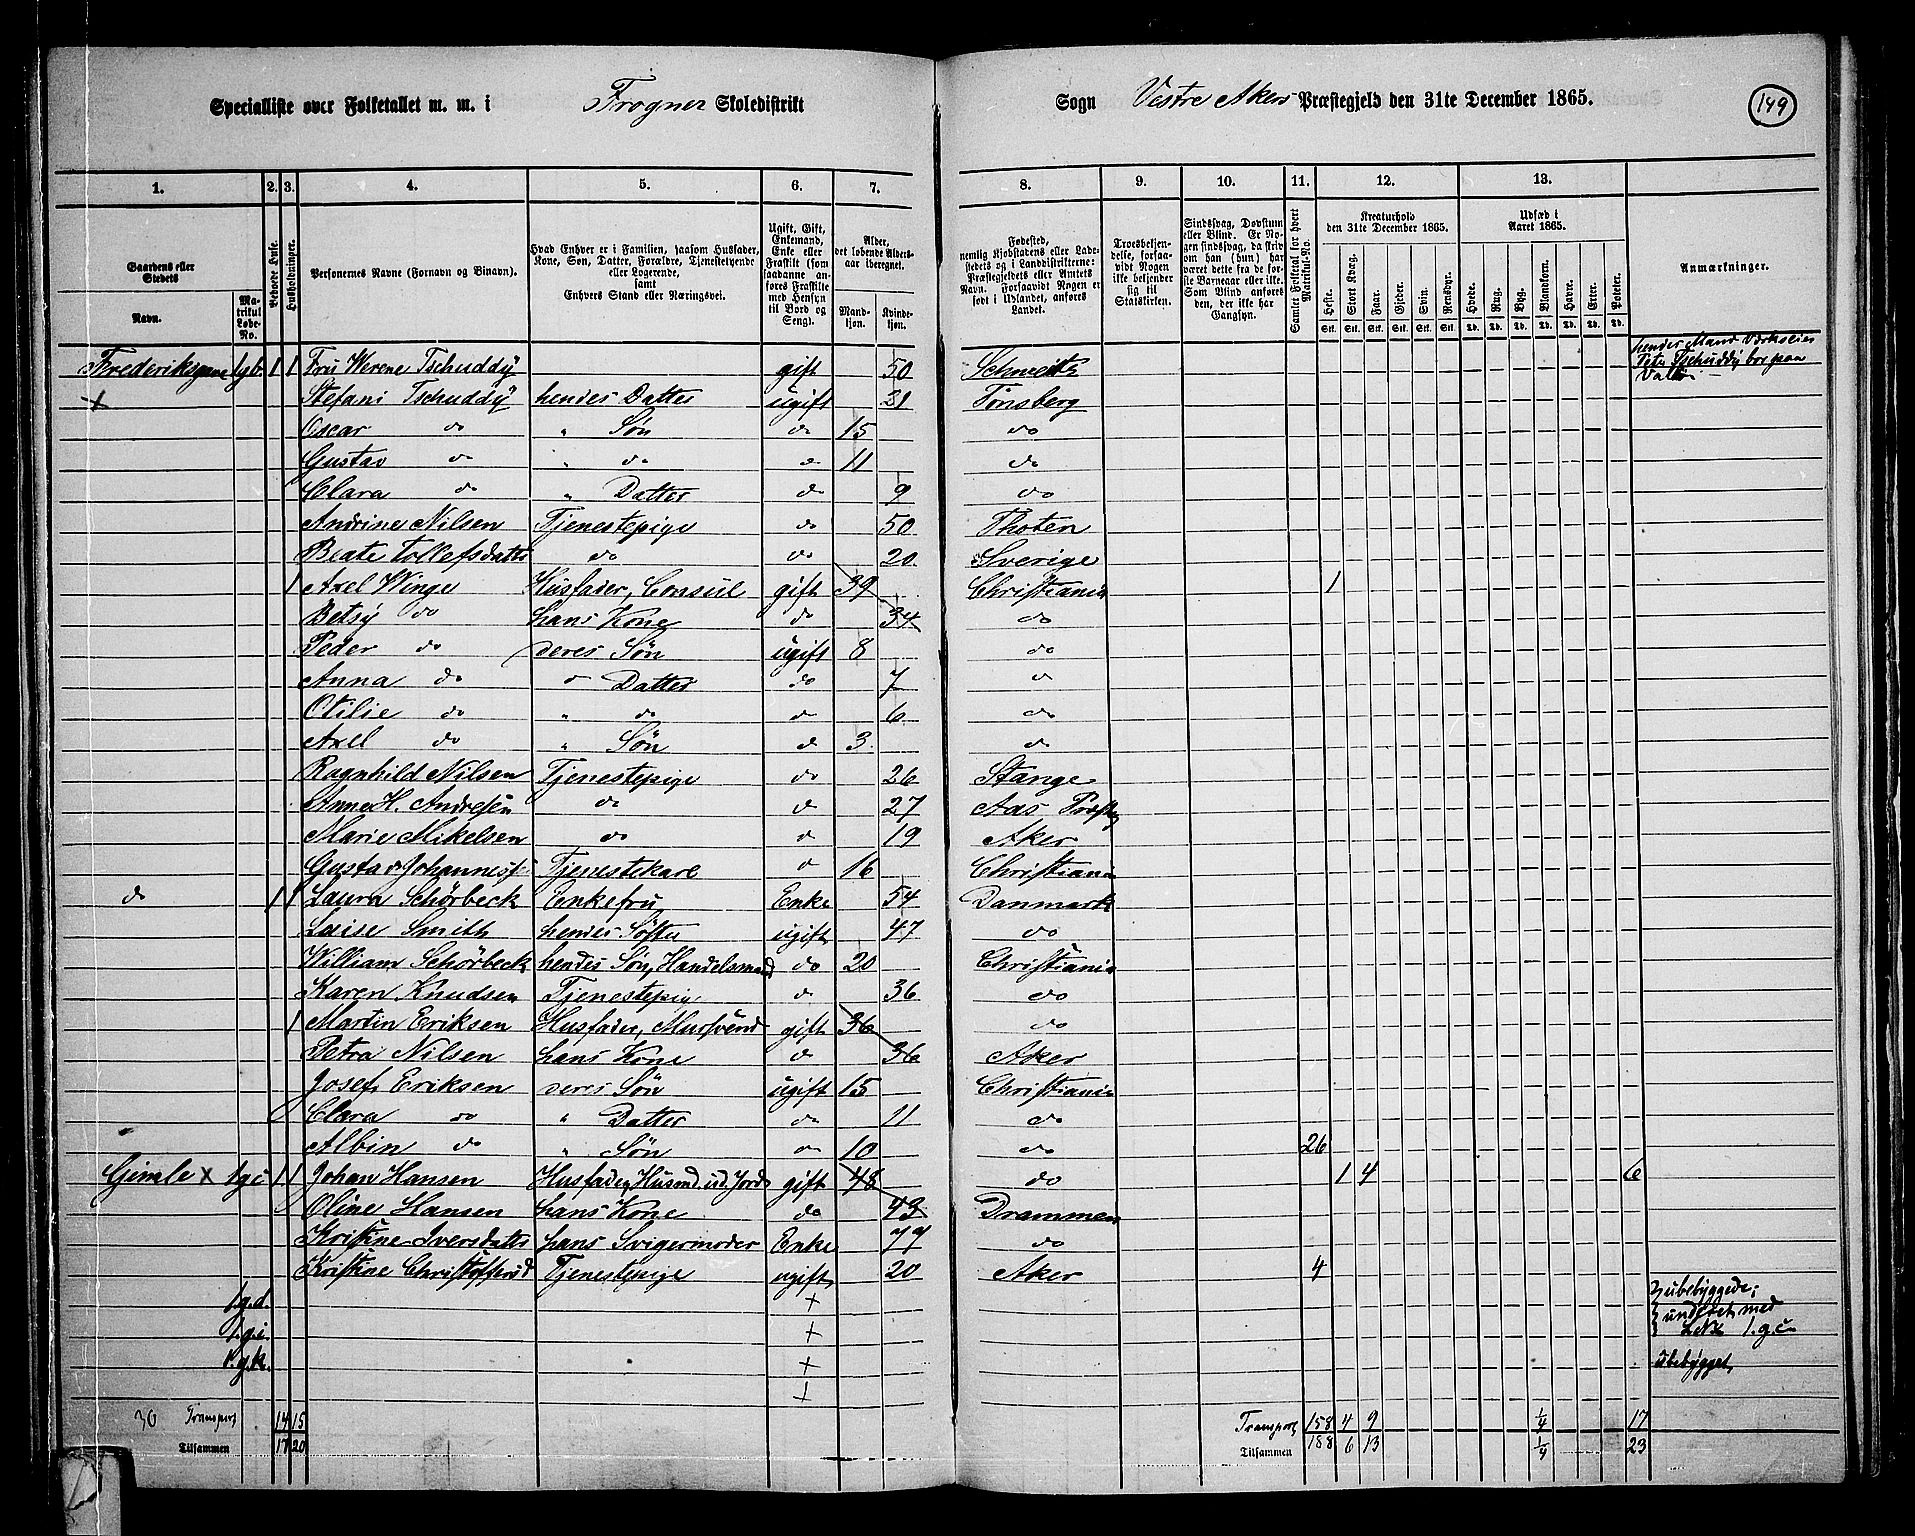 Specialliste over Folketallet m. m. i Frogner Skoledistrikt Sogn Vestre Akers Præstegjeld den 31te December 1865. 149
1. 2. 3. 4. 5. 6. 7. 8. 9. 10. 11. 12. 13.
Gaardens eller Stedets Navn. Matrikul Løbe-No. Beboede Huse. Husholdninger. Personernes Navne (Fornavn og Binavn). Hvad Enhver er i Familien, saasom Husfader, Kone, Søn, Datter, Forældre, Tjenestetyende eller Logerende, samt Enhvers Stand eller Næringsvei. Ugift, Gift, Enkemand, Enke eller Fraskilt (som saadanne anføres Fraskilte med Hensyn til Bord og Seng). Alder, det løbende Aldersaar iberegnet. Mandkjøn. Kvindekjøn. Fødested, nemlig Kjøbstadens eller Ladestedets og i Landdistrikterne: Præstegjeldets eller Amtets Navn. Forsaavidt Nogen er født i Udlandet, anføres Landet. Troesbekjendelse, forsaavidt Nogen ikke bekjender sig til Statskirken. Sindssvag, Døvstum eller Blind. Er Nogen sindssvag, da skriv om han (hun) har været dette fra de første Barneaar eller ikke. Som Blind anføres den, der ikke har Gangsyn. Samlet Folketal for hvert Matrikul-No. Kreaturhold den 31te December 1865. Heste. Stort Kvæg. Faar. Gjeder. Svin. Rensdyr. Udsæd i Aaret 1865. Hvede. Rug. Byg. Blandkorn. Havre. Erter. Poteter. Anmærkninger.
Stk. Stk. Stk. Stk. Stk. Stk. Td. Td. Td. Td. Td. Td. Td.
1 1 Fru Werene Tschuddÿ gift 50 Schweitz hendes Mand Værkseier Peter Tschuddÿ bor paa
+ Stefani Tschuddÿ hendes Datter ugift Tønsberg
Oscar do " Søn do 15 do
Gustav do " do do 11 do
Clara do " Datter do 9 do
Andrine Nilsen Tjenestepige do 50 Thoten
Beate Tollefsdatter do do 20 Sverige
1 Axel Winge Husfader, Consul gift 39 Christiania 1
Betsÿ do hans Kone do 34 do
Peder do deres Søn ugift 8 do
Anna do " Datter do 7 do
Otilie do " do do 6 do
Axel do " Søn do 3 do
Ragnhild Nilsen Tjenestepige do 26 Stange
Anne H. Andresen do do 27 Aas Præstg
Marie Mikelsen do do 19 Aker
Gustav Johannes Tjenestekarl do 16 Christiania
do 1 1 Laura Schörbeck Enkefru Enke 54 Danmark
Luise Smith hendes Søster ugift 47 do
William Schörbeck hendes Søn, Handelsmand do 20 Christiania
Karen Knudsen Tjenestepige do 36 do
1 Martin Eriksen Husfader, Mursvend gift 36 do
Petra Nilsen hans Kone do 36 Aker
Josef Eriksen deres Søn ugift 15 Christiania
Clara do " Datter do 11 do
Albin do " Søn do 10 do 26
Gimle x 1gc 1 1 Johan Hansen Husfader, Husmd. ud. Jord gift 48 do 1 4 6
Oline Hansen hans Kone do 43 Drammen
Kristine Iversdatter hans Svigermoder Enke 77 do
Kristine Christoffersd Tjenestepige ugift 20 Aker 4
1.g.d. + ubebyggede;
1.g.i. + med LNo 1.g.c
1.g.k. + Ubebygget
+
30 Transport 14 15 Transport 158 4 9 1/4 17
Tilsammen 17 20 Tilsammen 188 6 13 1/4 23